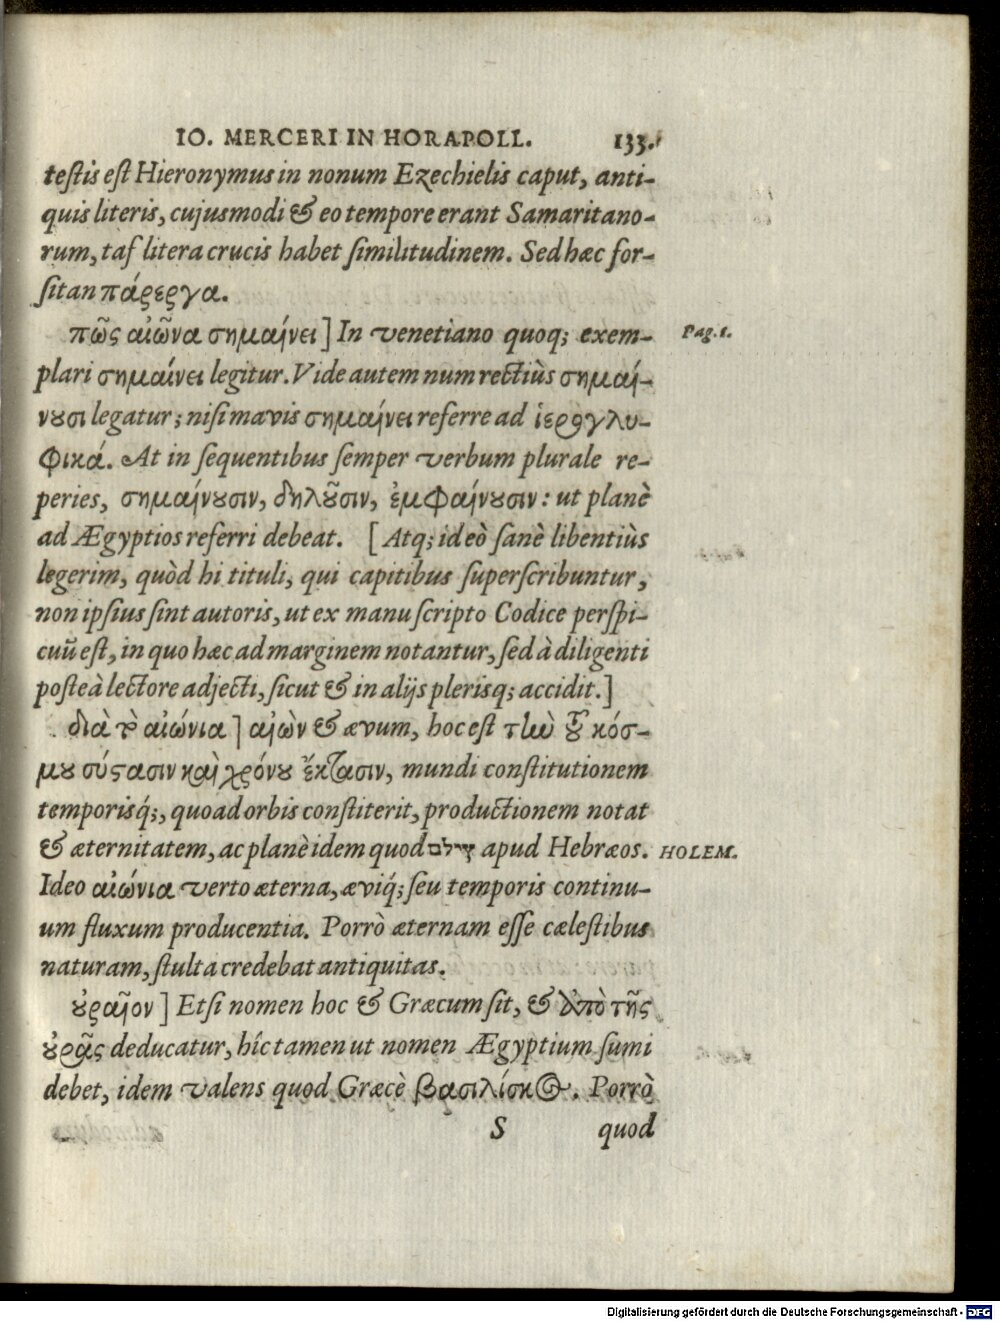 IO. MERCERI IN HORAPOLL. 133.
testis est Hieronymus in nonum Ezechielis caput, anti-
quis literis, cujusmodi & eo tempore erant Samaritano-
rum, taf litera crucis habet similitudinem. Sed hæc for-
sitan πάρεργα.
πῶς αἰῶνα σημαίνει] In venetiano quoq; exem- Pag. 1.
plari σημαίνει legitur. Vide autem num rectiùs σημαί-
νουσι legatur; nisi mavis σημαίνει referre ad ἱερογλυ-
φικά. At in sequentibus semper verbum plurale re-
peries, σημαίνουσιν, δηλοῦσιν, ἐμφαίνουσιν: ut planè
ad Ægyptios referri debeat. [Atq; ideò sanè libentiùs
legerim, quòd hi tituli, qui capitibus superscribuntur,
non ipsius sint autoris, ut ex manu scripto Codice perspi-
cuũ est, in quo hæc ad marginem notantur, sed à diligenti
posteà lectore adjecti, sicut & in alijs plerisq; accidit.]
διὰ τὸ αἰώνια] αἰὼν & ævum, hoc est τὴν τοῦ κόσ-
μου σύστασιν καὶ χρόνου ἔκτασιν, mundi constitutionem
temporisq́;, quoad orbis constiterit, productionem notat
& æternitatem, ac planè idem quod עילם apud Hebræos. HOLEM.
Ideo αἰώνια verto æterna, æviq́; seu temporis continu-
um fluxum producentia. Porrò æternam esse cælestibus
naturam, stulta credebat antiquitas.
οὐραῖον] Etsi nomen hoc & Græcum sit, & ἀπὸ τῆς
οὐρᾶς deducatur, híc tamen ut nomen Ægyptium sumi
debet, idem valens quod Græcè βασιλίσκος. Porrò
S quod
Digitalisierung gefördert durch die Deutsche Forschungsgemeinschaft - DFG